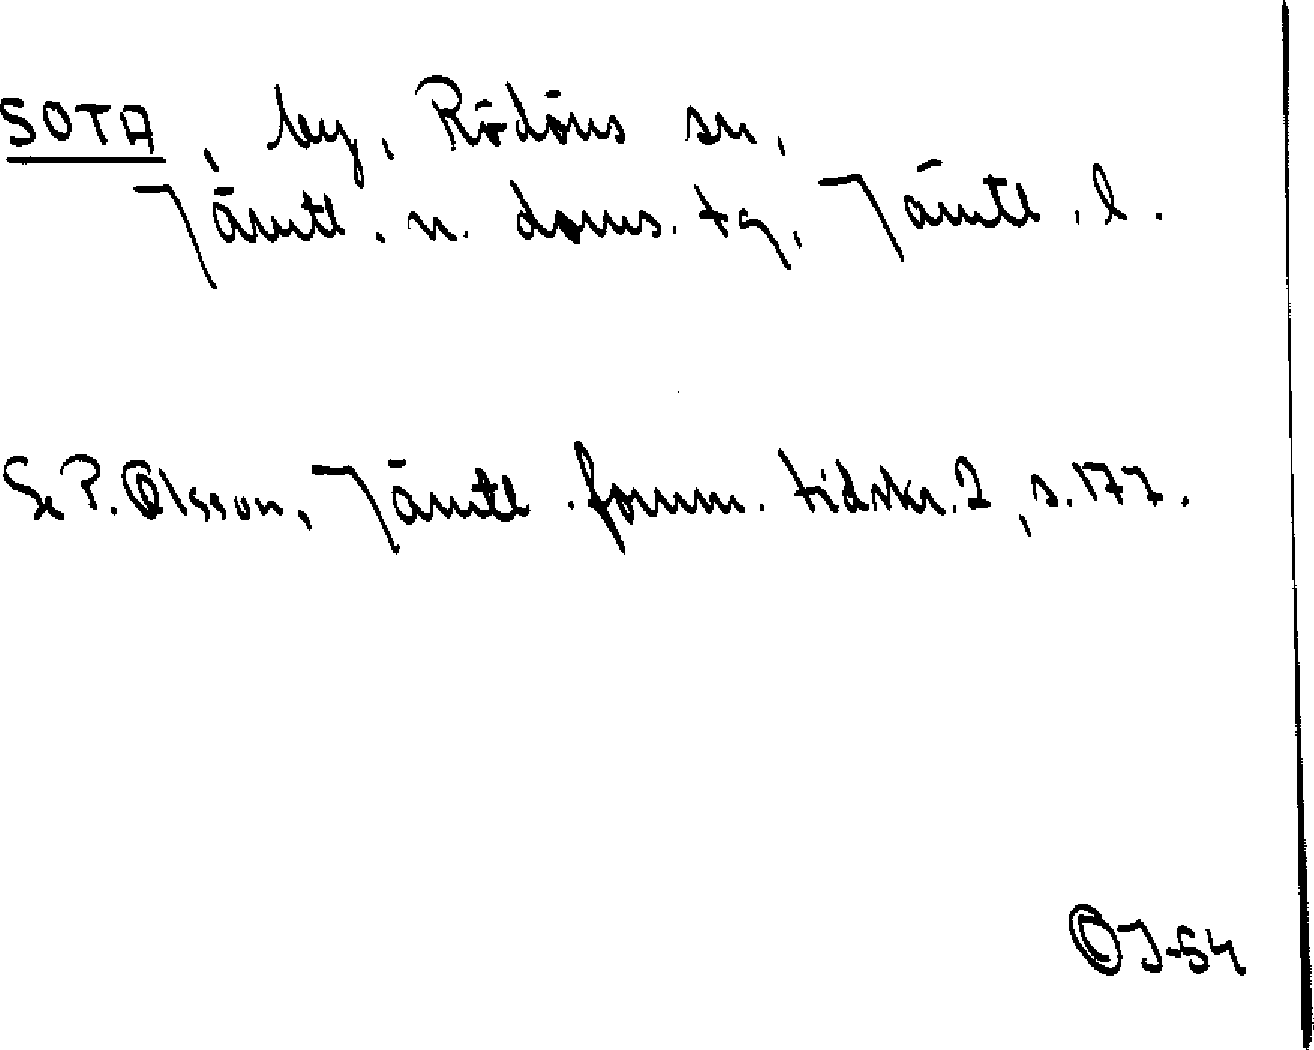 SOTA, by, Rödöns sn,
Jämtl. n. doms. tg, Jämtl. l.
Se P. Olsson, Jämtl. fornm. tidskr. 2, s. 177.
OJ-54